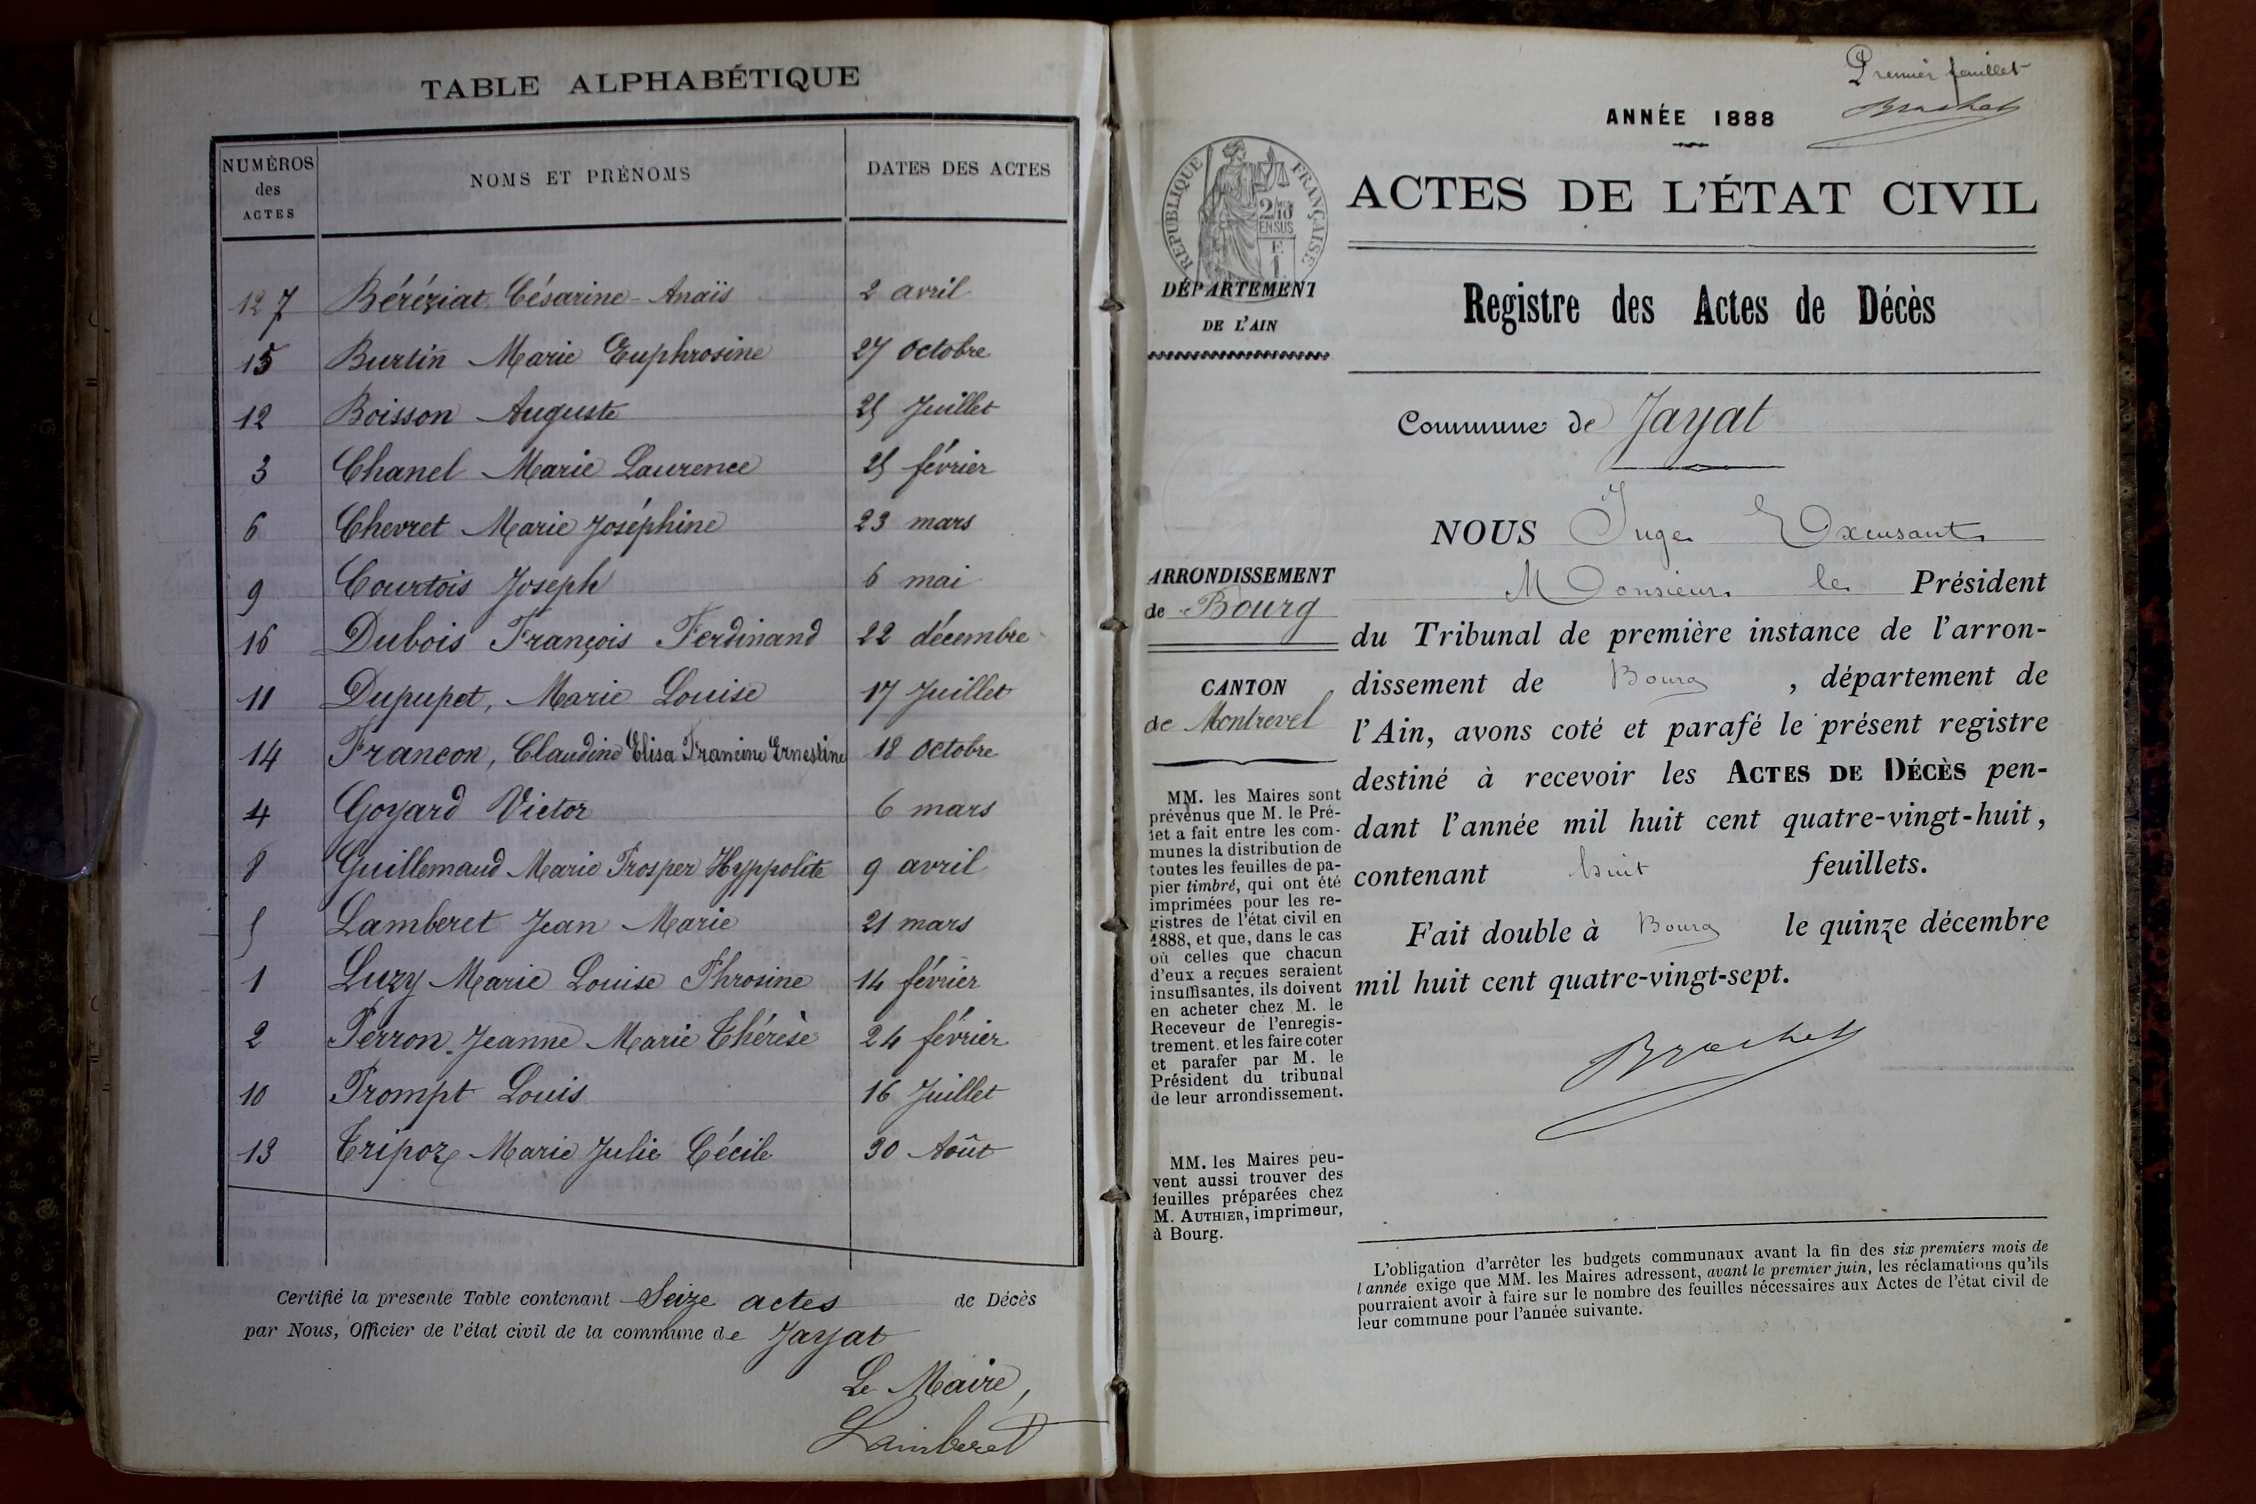 TABLE ALPHABÉTIQUE
NUMÉROS des ACTES NOMS ET PRÉNOMS DATES DES ACTES
7 Béréziat Césarine-Anaïs 2 avril
15 Burtin Marie Euphrosine 27 octobre
12 Boisson Auguste 25 Juillet
3 Chanel Marie Laurence 25 février
6 Chevret Marie Joséphine 23 mars
9 Courtois Joseph 6 mai
16 Dubois François Ferdinand 22 décembre
11 Dupupet, Marie Louise 17 Juillet
14 Francon, Claudine Elisa Francine Ernestine 18 octobre
4 Goyard Victor 6 mars
8 Guillemaud Marie Prosper Hyppolite 9 avril
5 Lamberet Jean Marie 21 mars
1 Luzy Marie Louise Phrosine 14 février
2 Perron Jeanne Marie Thérèse 24 février
10 Prompt Louis 16 Juillet
13 Tripoz Marie Julie Cécile 30 Août
Certifié la présente Table contenant Seize actes de Décès
par Nous, Officier de l'état civil de la commune de Jayat
Le Maire,
Lamberet
Premier feuillet
Brachet
ANNÉE 1888
RÉPUBLIQUE FRANÇAISE
2/10
EN SUS
E
1
ACTES DE L'ÉTAT CIVIL
DÉPARTEMENT
DE L'AIN
Registre des Actes de Décès
Commune de Jayat
ARRONDISSEMENT
de Bourg
CANTON
de Montrevel
MM. les Maires sont
prévenus que M. le Pré-
fet a fait entre les com-
munes la distribution de
toutes les feuilles de pa-
pier timbré, qui ont été
imprimées pour les re-
gistres de l'état civil en
1888, et que, dans le cas
où celles que chacun
d'eux a reçues seraient
insuffisantes, ils doivent
en acheter chez M. le
Receveur de l'enregis-
trement. et les faire coter
et parafer par M. le
Président du tribunal
de leur arrondissement.
MM. les Maires peu-
vent aussi trouver des
feuilles préparées chez
M. AUTHIER, imprimeur,
à Bourg.
NOUS Juge Excusant
Monsieur le Président
du Tribunal de première instance de l'arron-
dissement de Bourg, département de
l'Ain, avons coté et parafé le présent registre
destiné à recevoir les ACTES DE DÉCÈS pen-
dant l'année mil huit cent quatre-vingt-huit,
contenant huit feuillets.
Fait double à Bourg le quinze décembre
mil huit cent quatre-vingt-sept.
Brachet
L'obligation d'arrêter les budgets communaux avant la fin des six premiers mois de
l'année exige que MM. les Maires adressent, avant le premier juin, les réclamations qu'ils
pourraient avoir à faire sur le nombre des feuilles nécessaires aux Actes de l'état civil de
leur commune pour l'année suivante.